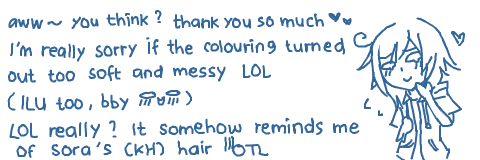 aww ~ you think? thank you so much ♥♥
I'm really sorry if the colouring turned
out too soft and messy LOL
(ILU too, bby 罒u罒)
LOL really? It somehow reminds me
of Sora's (KH) hair lllOTL